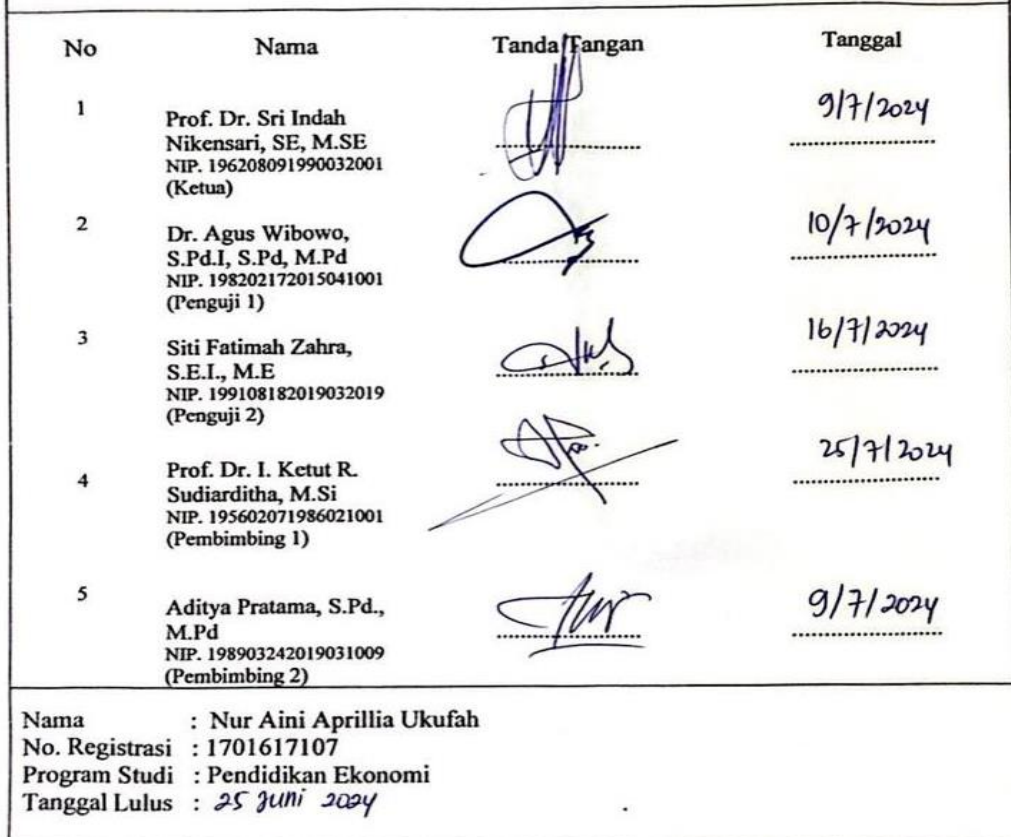 No Nama Tanda Tangan Tanggal
1 Prof. Dr. Sri Indah 9/7/2024
Nikensari, SE, M.SE
NIP. 196208091990032001
(Ketua)
2 Dr. Agus Wibowo, 10/7/2024
S.Pd.I, S.Pd, M.Pd
NIP. 198202172015041001
(Penguji 1)
3 Siti Fatimah Zahra, 16/7/2024
S.E.I., M.E
NIP. 199108182019032019
(Penguji 2)
4 Prof. Dr. I. Ketut R. 25/7/2024
Sudiarditha, M.Si
NIP. 195602071986021001
(Pembimbing 1)
5 Aditya Pratama, S.Pd., 9/7/2024
M.Pd
NIP. 198903242019031009
(Pembimbing 2)
Nama : Nur Aini Aprillia Ukufah
No. Registrasi : 1701617107
Program Studi : Pendidikan Ekonomi
Tanggal Lulus : 25 Juni 2024